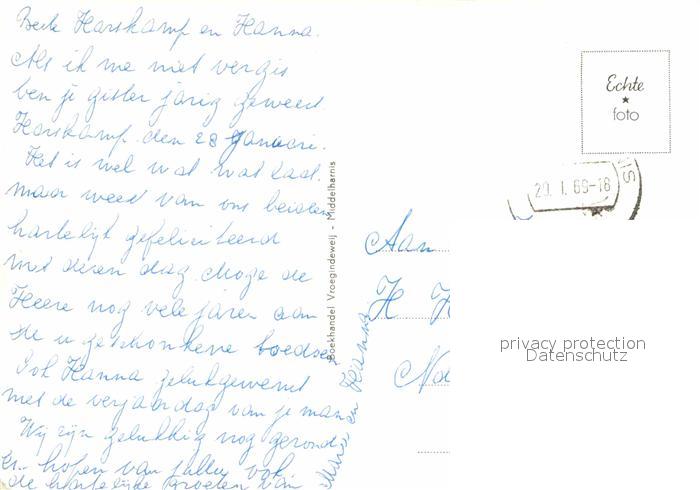 Beste Harskamp en Hanna.
Als ik me niet vergis
ben je gister jarig geweest.
Harskamp. den 28 Januari.
Het is wel wat wat laat.
maar weest van ons beiden
hartelijk gefeliciteerd
met dezen dag. Moge de
Heere nog vele jaren aan
de u geschonkene
Ook Hanna gelukgewenst
met de verjaardag van je man
Wij zijn gelukkig nog gezond
En hopen van jullie ook
de hartelijke groeten van
en Hanna
Boekhandel Vroegindeweij - Middelharnis
Echte
foto
29. 1. 66-18
NIS
Aan
H H
No
privacy protection
Datenschutz